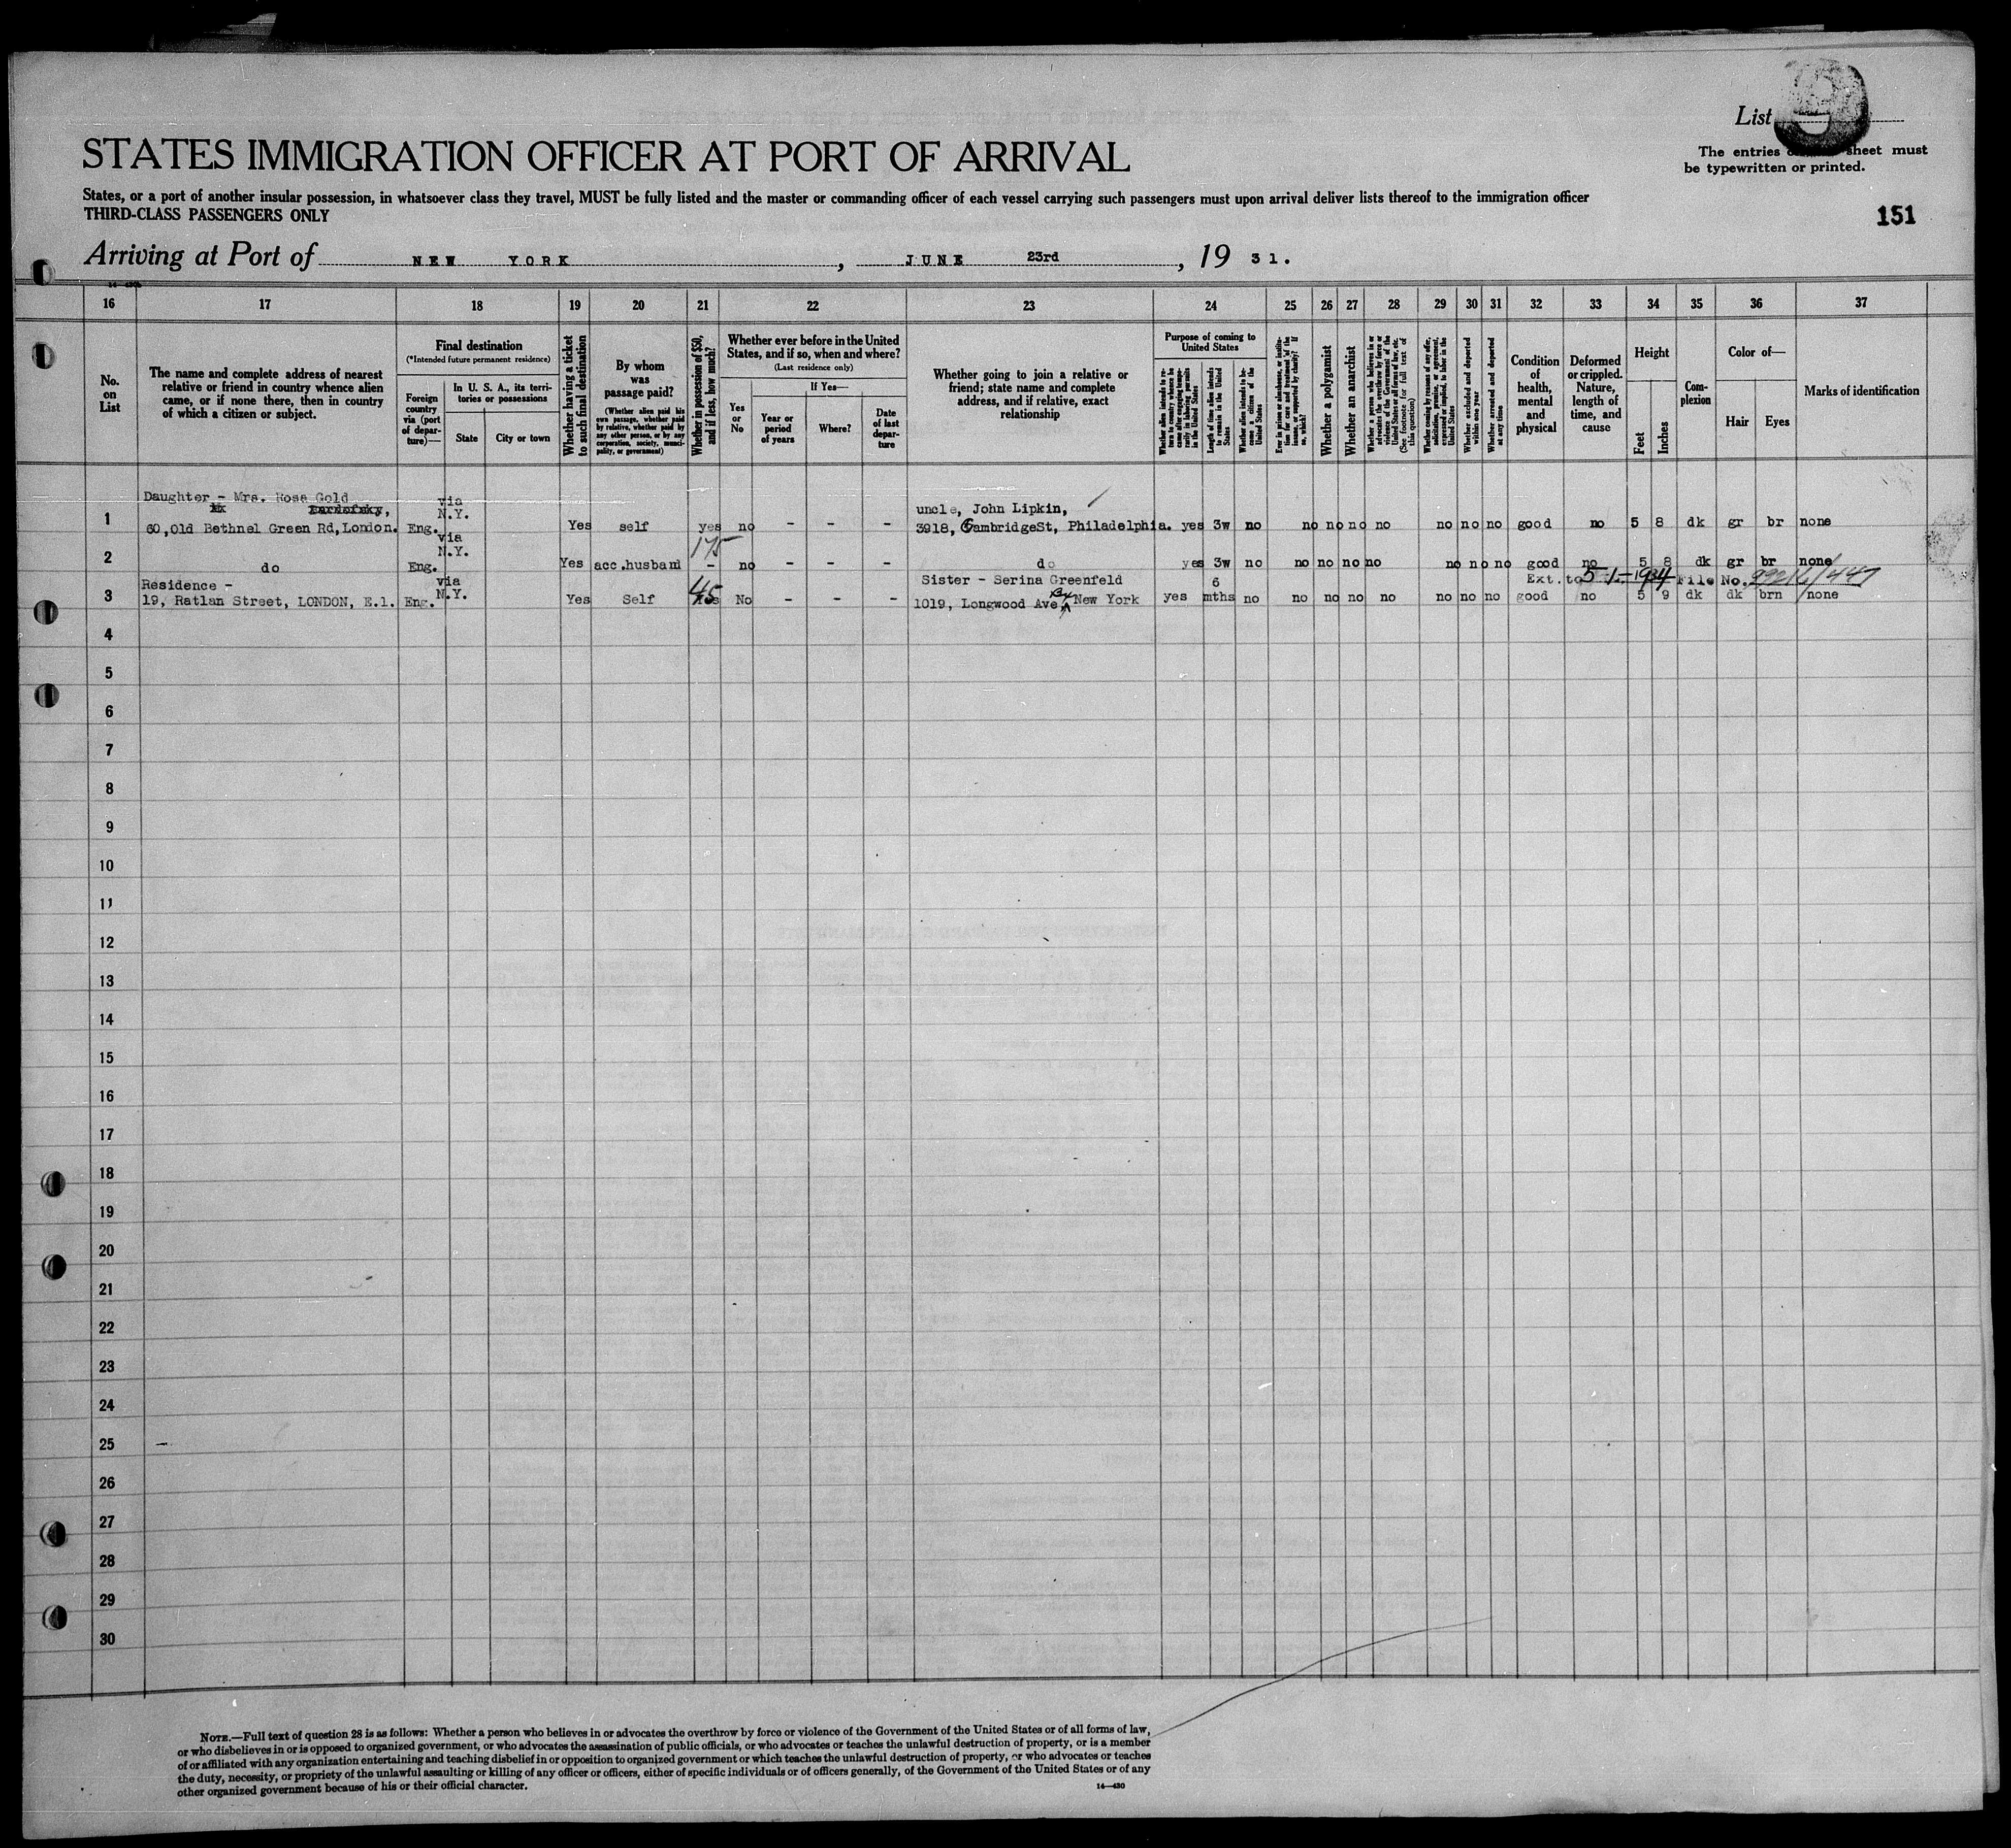 List
The entries sheet must
be typewritten or printed.
STATES IMMIGRATION OFFICER AT PORT OF ARRIVAL
States, or a port of another insular possession, in whatsoever class they travel, MUST be fully listed and the master or commanding officer of each vessel carrying such passengers must upon arrival deliver lists thereof to the immigration officer
THIRD-CLASS PASSENGERS ONLY
151
Arriving at Port of NEW YORK, JUNE 23rd, 19 31.
16 17 18 19 20 21 22 23 24 25 26 27 28 29 30 31 32 33 34 35 36 37
No. on List
The name and complete address of nearest
relative or friend in country whence alien
came, or if none there, then in country
of which a citizen or subject.
Final destination
(*Intended future permanent residence)
Foreign
country
via (port
of depar-
ture)—
In U. S. A., its terri-
tories or possessions
State
City or town
Whether having a ticket
to such final destination
By whom
was
passage paid?
(Whether alien paid his
own passage, whether paid
by relative, whether paid by
any other person, or by any
corporation, society, munici-
pality, or government)
Whether in possession of $50,
and if less, how much?
Whether ever before in the United
States, and if so, when and where?
(Last residence only)
Yes
or
No
If Yes—
Year or
period
of years
Where?
Date
of last
depar-
ture
Whether going to join a relative or
friend; state name and complete
address, and if relative, exact
relationship
Purpose of coming to
United States
Whether alien intends to re-
turn to country whence he
came after engaging tempo-
rarily in laboring pursuits
in the United States
Length of time alien intends
to remain in the United
States
Whether alien intends to be-
come a citizen of the
United States
Ever in prison or almshouse, or institu-
tion for care and treatment of the
insane, or supported by charity? If
so, which?
Whether a polygamist
Whether an anarchist
Whether a person who believes in or
advocates the overthrow by force or
violence of the Government of the
United States or all forms of law, etc.
(See footnote for full text of
this question)
Whether coming by reason of any offer,
solicitation, promise, or agreement,
expressed or implied, to labor in the
United States
Whether excluded and deported
within one year
Whether arrested and deported
at any time
Condition
of
health,
mental
and
physical
Deformed
or crippled.
Nature,
length of
time, and
cause
Height
Feet
Inches
Com-
plexion
Color of—
Hair
Eyes
Marks of identification
Daughter - Mrs. Rosa Gold via uncle, John Lipkin,
N.Y.
1 60,Old Bethnel Green Rd,London. Eng. Yes self yes no - - - 3918, CambridgeSt, Philadelphia. yes 3w no no no no no no no no good no 5 8 dk gr br none
via 175
N.Y.
2 do Eng. Yes acc.husband - no - - - do yes 3w no no no no no no no no good no 5 8 dk gr br none
Residence - via Sister - Serina Greenfeld 6 Ext. to 5-1-1934 File No.
N.Y. 45
3 19, Ratlan Street, LONDON, E.1. Eng. Yes Self Yes No - - - 1019, Longwood Ave Bx New York yes mths no no no no no no no no good no 5 9 dk dk brn none
4
5
6
7
8
9
10
11
12
13
14
15
16
17
18
19
20
21
22
23
24
25
26
27
28
29
30
NOTE.—Full text of question 28 is as follows: Whether a person who believes in or advocates the overthrow by force or violence of the Government of the United States or of all forms of law,
or who disbelieves in or is opposed to organized government, or who advocates the assassination of public officials, or who advocates or teaches the unlawful destruction of property, or is a member
of or affiliated with any organization entertaining and teaching disbelief in or opposition to organized government or which teaches the unlawful destruction of property, or who advocates or teaches
the duty, necessity, or propriety of the unlawful assaulting or killing of any officer or officers, either of specific individuals or of officers generally, of the Government of the United States or of any
other organized government because of his or their official character.
14—430